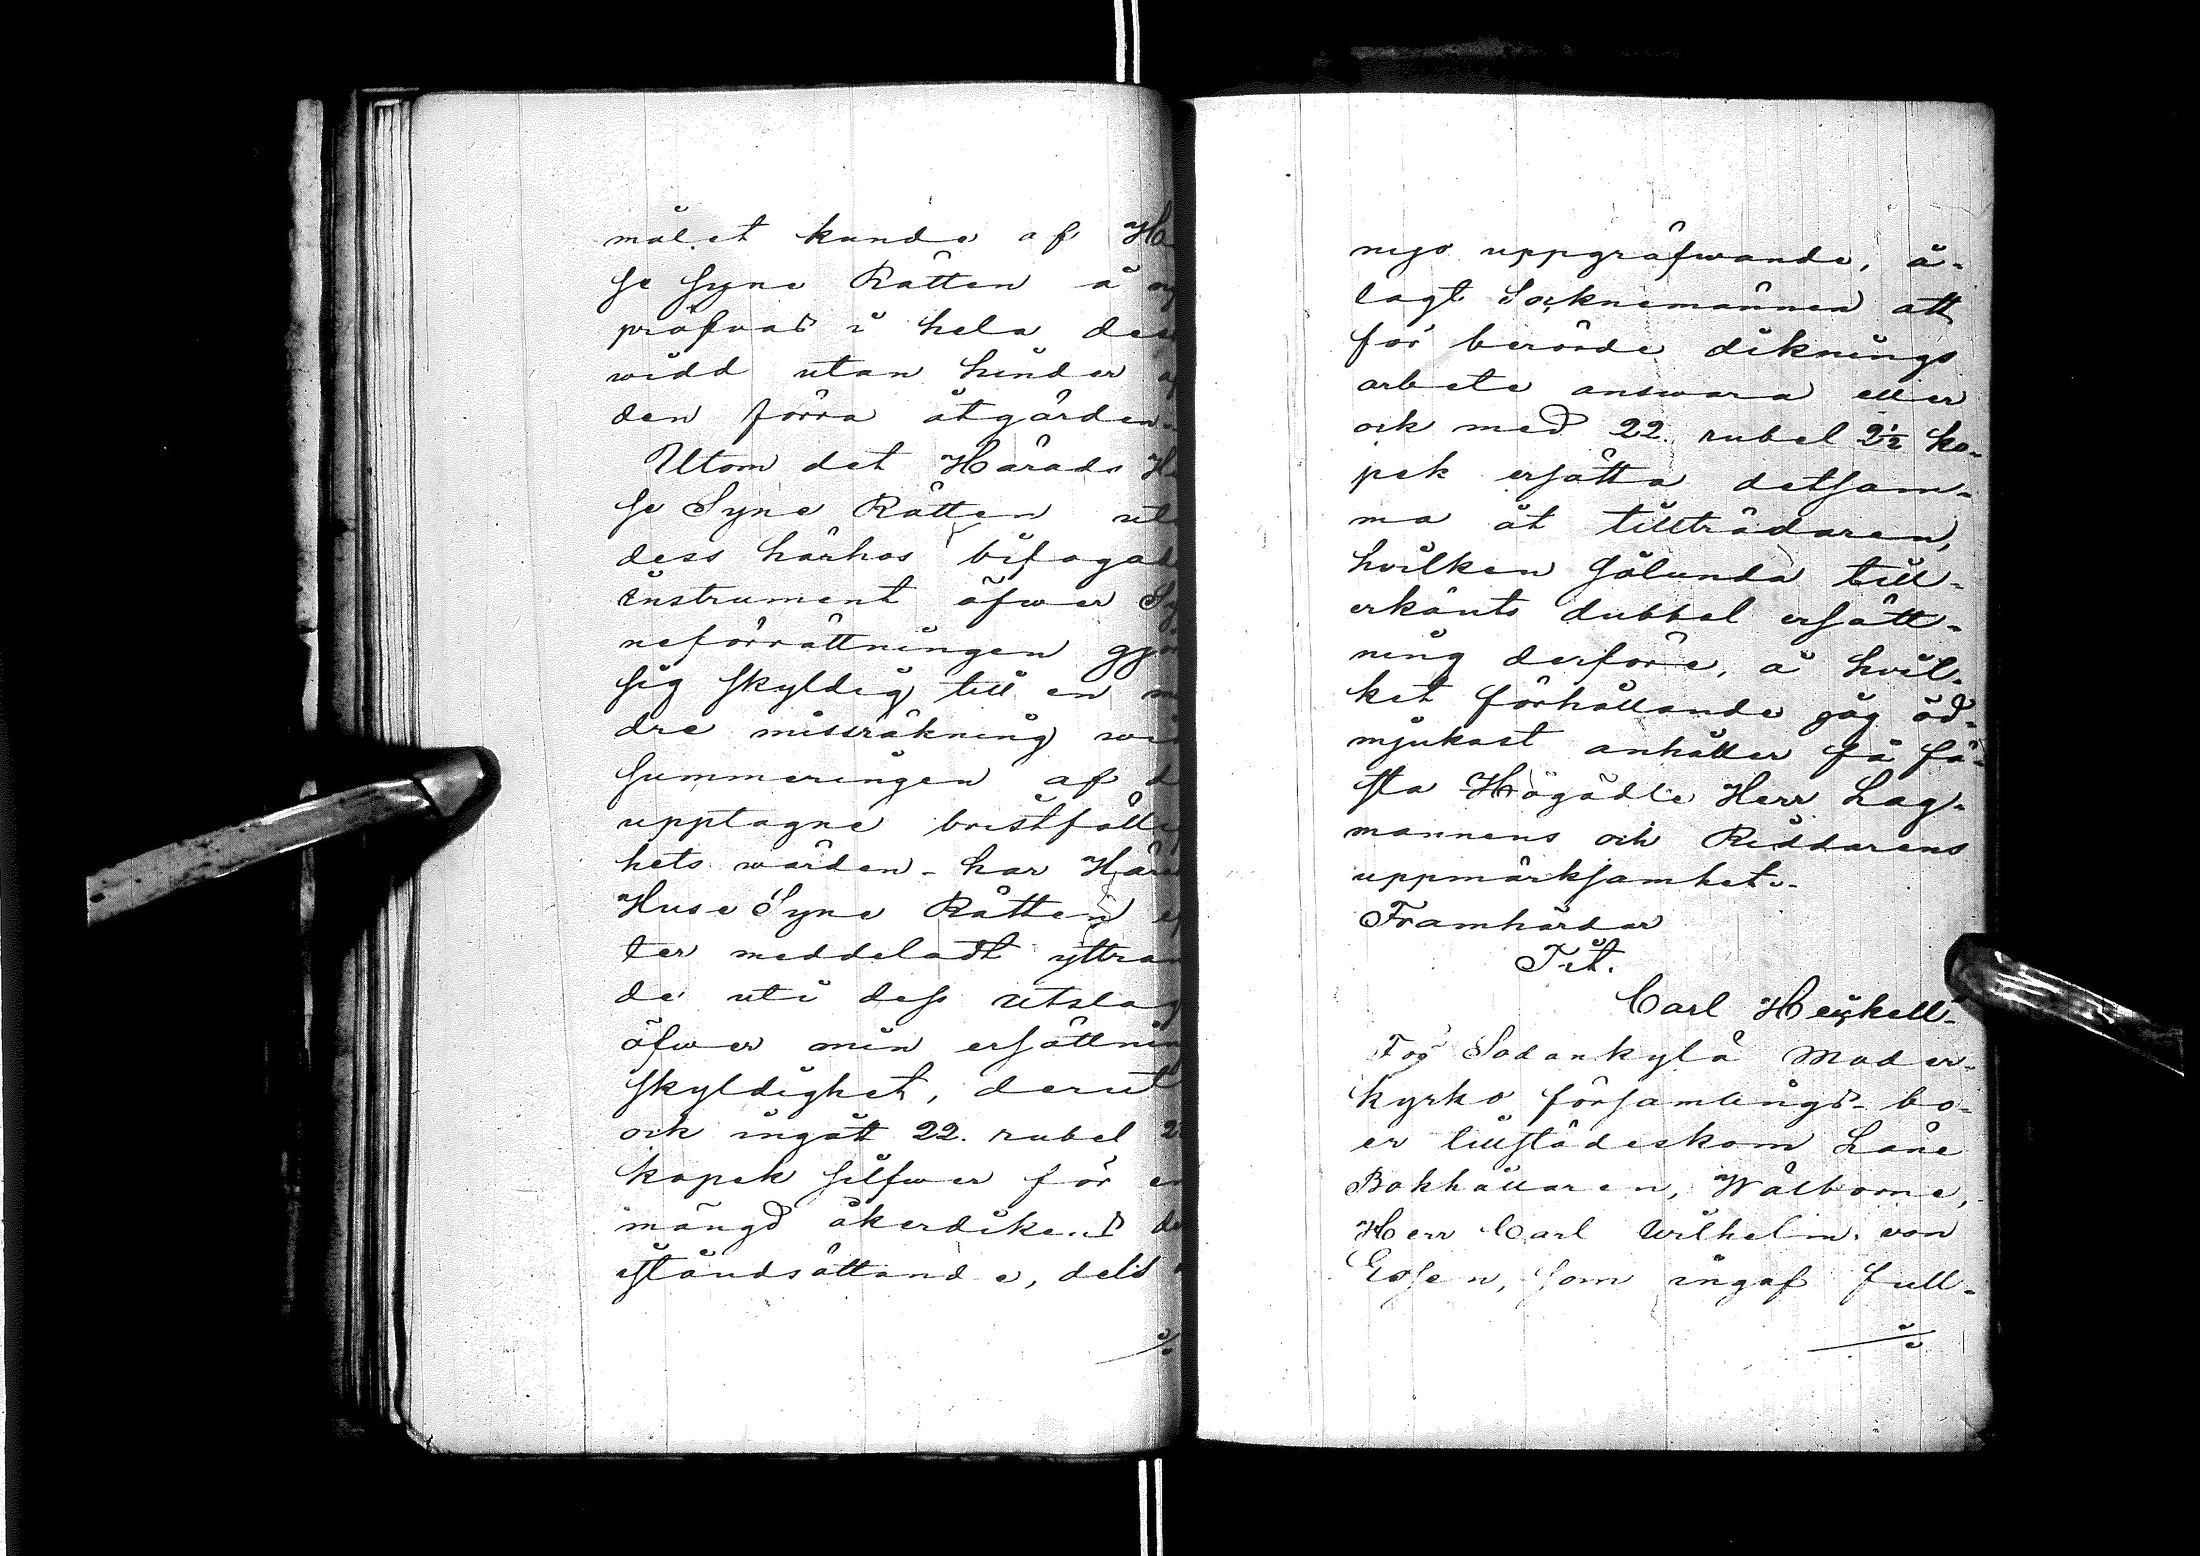 målet kunde af Hu
se Syne Rätten å ny
pröfvas i hela dess
widd utan hinder af
den förra åtgärden.
Utom det Härads Hu
se Syne Rätten uti
dess härhos bifogade
instrument öfwer Sy
neförrättningen gjort
sig skyldig till en min
dre missräkning wid
summeringen af de
upptagne bristfällig
hets wärden - har Härads
Huse Syne Rätten ef
ter meddeladt yttran
de uti dess utslag
öfwer min ersättnings
skyldighet, deruti
ock ingått 22. rubel 2½
kopek silfwer för en
mängd åkerdikens dels
iståndsättande, dels
./.
nyo uppgräfwande, å-
lagt Socknemännen att
för berörde diknings
arbete answara eller
ock med 22. rubel 2½ ko-
pek ersätta detsam-
ma åt tillträdaren,
hvilken sålunda till-
erkänts dubbel ersätt-
ning derföre, å hvil-
ket förhållande jag öd-
mjukast anhåller få fä-
sta Högädle Herr Lag-
mannens och Riddarens
uppmärksamhet.-
Framhärdar
Tit.
Carl Heikell.
För Sodankylä Moder-
kyrko församlings- bo-
er tillstädeskom Läne
Bokhållaren, Wälborne,
Herr Carl Wilhelm von
Essen, som ingaf full-
./.